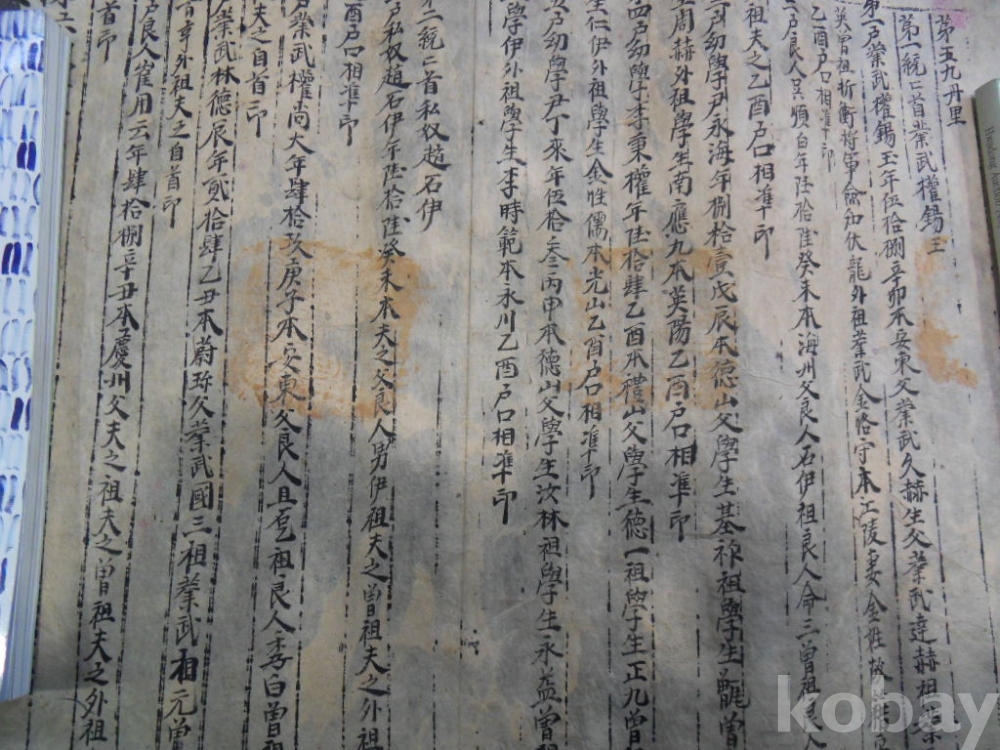 第五九丹里
第一統二首業武權錫玉
第一戶業武權錫玉年伍拾捌辛卯本安東父業武久赫生父業武達赫祖業
英曾祖折衝將軍僉知伏龍外祖業武金格守本江陵妻金姓故
乙酉戶口相準印
二戶良人吳順白年陸拾陸癸未本海州父良人石伊祖良人命三曾祖良人
祖夫之乙酉戶口相準印
三戶幼學尹永海年捌拾壹戊辰本德山父學生基祿祖學生曾
生周赫外祖學生南應九本英陽乙酉戶口相準印
四戶幼學李東權年陸拾肆乙酉本禮山父學生德一祖學生正九曾
生仁伊外祖學生金性儒本光山乙酉戶口相準印
戶幼學尹丁來年伍拾參丙申本德山父學生汝林祖學生永益曾祖
學伊外祖學生李時範本永川乙酉戶口相準印
第二統二首私奴趙石伊
戶私奴趙石伊年陸拾陸癸未本夫之父良人男伊祖夫之曾祖夫之外祖
乙酉戶口相準印
戶業武權尚大年肆拾玖庚子本安東父良人且包祖良人季白曾祖
夫之自首印
業武林德辰年貳拾肆乙丑本蔚珍父業武國三祖業武相元曾
外祖夫之自首印
良人崔用云年肆拾捌辛丑本慶州父夫之祖夫之曾祖夫之外祖
首印
kobay